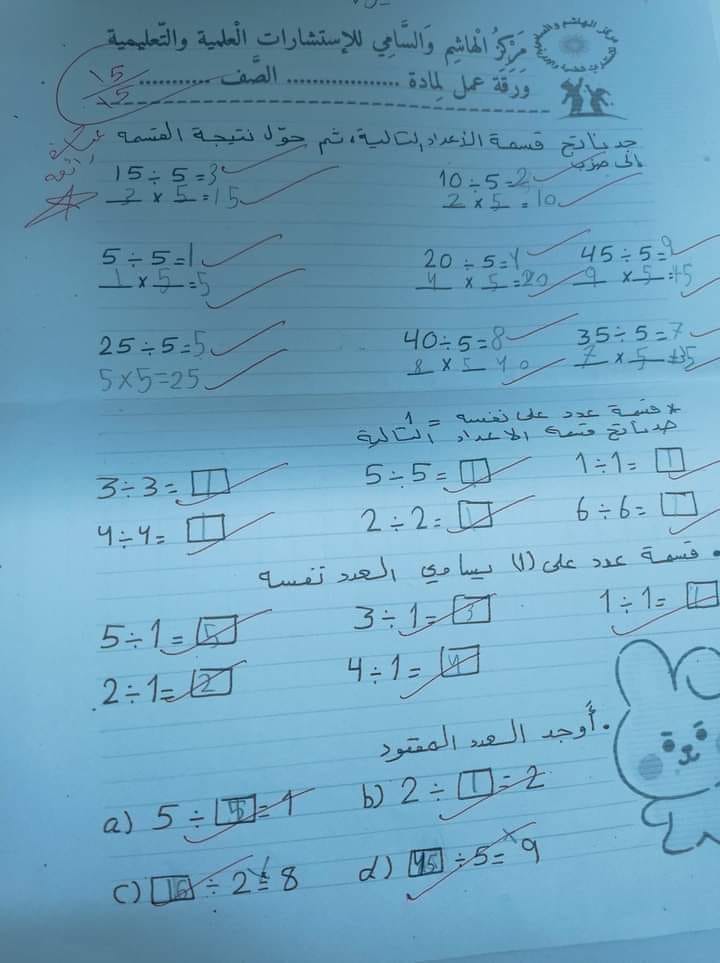 مَرْكَزُ الْهَاشِمِ وَالسَّامِي لِلإِسْتِشَارَاتِ الْعِلْمِيَّةِ وَالتَّعْلِيمِيَّةِ
وَرَقَةُ عَمَلٍ لِمَادَةِ .................. الصَّف ............
15
15
جد ناتج قسمة الأعداد التالية، ثم حوّل نتيجة القسمة
إلى ضرب
10 ÷ 5 = 2 15 ÷ 5 = 3
2 × 5 = 10 3 × 5 = 15
45 ÷ 5 = 9 20 ÷ 5 = 4 5 ÷ 5 = 1
9 × 5 = 45 4 × 5 = 20 1 × 5 = 5
35 ÷ 5 = 7 40 ÷ 5 = 8 25 ÷ 5 = 5
7 × 5 = 35 8 × 5 40 5 × 5 = 25
* قسمة عدد على نفسه = 1
جد ناتج قسمة الأعداد التالية
1 ÷ 1 = 1 5 ÷ 5 = 1 3 ÷ 3 = 1
6 ÷ 6 = 1 2 ÷ 2 = 1 4 ÷ 4 = 1
• قسمة عدد على (1) يساوي العدد نفسه
1 ÷ 1 = 1 3 ÷ 1 = 3 5 ÷ 1 = 5
4 ÷ 1 = 4 2 ÷ 1 = 2
• أوجد العدد المفقود
a) 5 ÷ 5 = 1 b) 2 ÷ 1 = 2
c) 16 ÷ 2 = 8 d) 45 ÷ 5 = 9